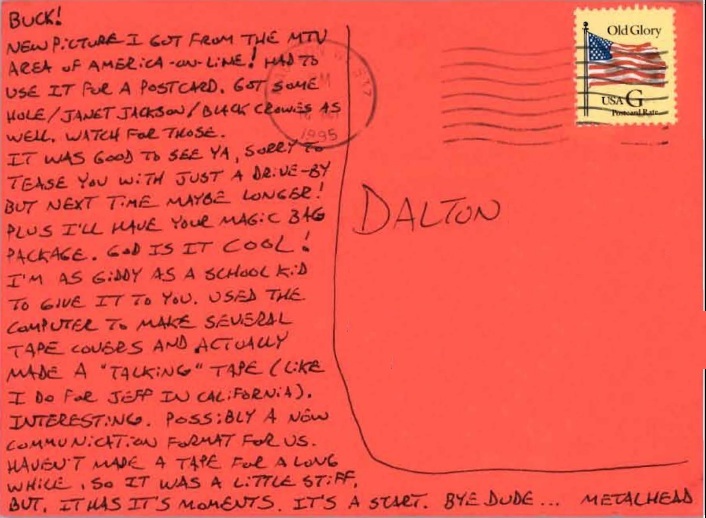 BUCK!
NEW PICTURE I GOT FROM THE MTV
AREA OF AMERICA-ON-LINE! HAD TO
USE IT FOR A POSTCARD. GOT SOME
HOLE/JANET JACKSON/BLACK CROWES AS
WELL. WATCH FOR THOSE.
IT WAS GOOD TO SEE YA, SORRY TO
TEASE YOU WITH JUST A DRIVE-BY
BUT NEXT TIME MAYBE LONGER!
PLUS I'LL HAVE YOUR MAGIC BAG
PACKAGE. GOD IS IT COOL!
I'M AS GIDDY AS A SCHOOL KID
TO GIVE IT TO YOU. USED THE
COMPUTER TO MAKE SEVERAL
TAPE COVERS AND ACTUALLY
MADE A "TALKING" TAPE (LIKE
I DO FOR JEFF IN CALIFORNIA).
INTERESTING. POSSIBLY A NEW
COMMUNICATION FORMAT FOR US.
HAVEN'T MADE A TAPE FOR A LONG
WHILE, SO IT WAS A LITTLE STIFF,
BUT, IT HAS IT'S MOMENTS. IT'S A START. BYE DUDE... METALHEAD
1995
Old Glory
USA G
Postcard Rate
DALTON